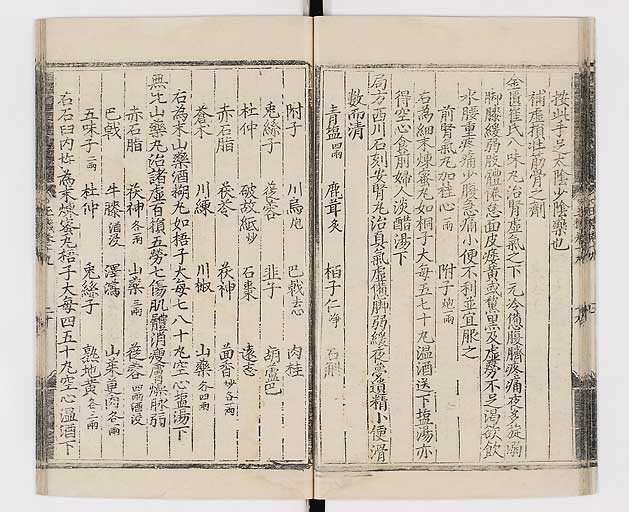 按此手足太陰少陰藥也
補虛損壯筋骨之劑
金匱崔氏八味丸治腎虛氣乏下元冷憊臍腹疼痛夜多旋溺
脚膝緩弱肢體倦怠面皮痿黄或黧黑及虛勞不足渇欲飲
水腰重疼痛少腹急痛小便不利並宜服之
前腎氣丸加桂心一兩 附子炮一兩
右為細末煉蜜丸如桐子大每五七十丸溫酒送下塩湯亦
得空心食前婦人淡醋湯下
局方西川石刻安腎丸治真氣虛憊脚弱緩夜夢遺精小便滑
數而清
青塩四兩 鹿茸炙 柏子仁淨 石斛
附子 川烏炮 巴戟去心 肉桂
兎絲子 蓯蓉 韭子 葫蘆巴
杜仲 破故紙炒 石棗 遠志
赤石脂 茯苓 茯神 茴香炒各一兩
蒼朮 川練 川椒 山藥各四兩
右為末山藥酒糊丸如梧子大每七八十丸空心塩湯下
無比山藥丸治諸虛百損五勞七傷肌體消瘦膚燥脉弱
赤石脂 茯神各一兩 山藥三兩 蓯蓉四兩酒浸
巴戟 牛膝酒浸 澤瀉 山茱萸肉各一兩
五味子二兩 杜仲 兎絲子 熟地黄各三兩
右石臼内杵為末煉蜜丸梧子大每四五十丸空心溫酒下